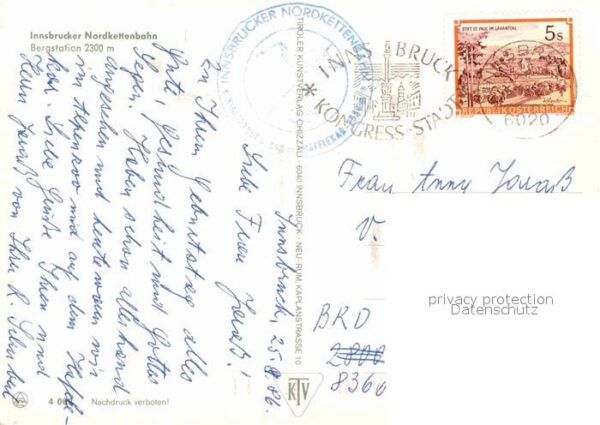 Innsbrucker Nordkettenbahn
Bergstation 2300 m
INNSBRUCKER NORDKETTENBAHN
INNSBRUCK
* KONGRESS-STADT
6020
STIFT ST. PAUL IM LAVANTTAL
5s
REPUBLIK ÖSTERREICH
TIROLER KUNSTVERLAG CHIZZALI · 6040 INNSBRUCK - NEU-RUM, KAPLANSTRASSE 10
KTV
Innsbruck, 25.8.86.
Liebe Frau Jaraß!
Zu Ihrem Geburtstag alles
Gute, Gesundheit und Gottes
Segen. Haben schon allerhand
angesehen und heute waren wir
im Alpenzoo und auf dem Hafele-
kar. Liebe Grüße Ihnen und
Herrn Jaraß von Ihrer R.
Frau Anny Jaraß
V.
BRD
2800
8360
privacy protection
Datenschutz
4 0
Nachdruck verboten!